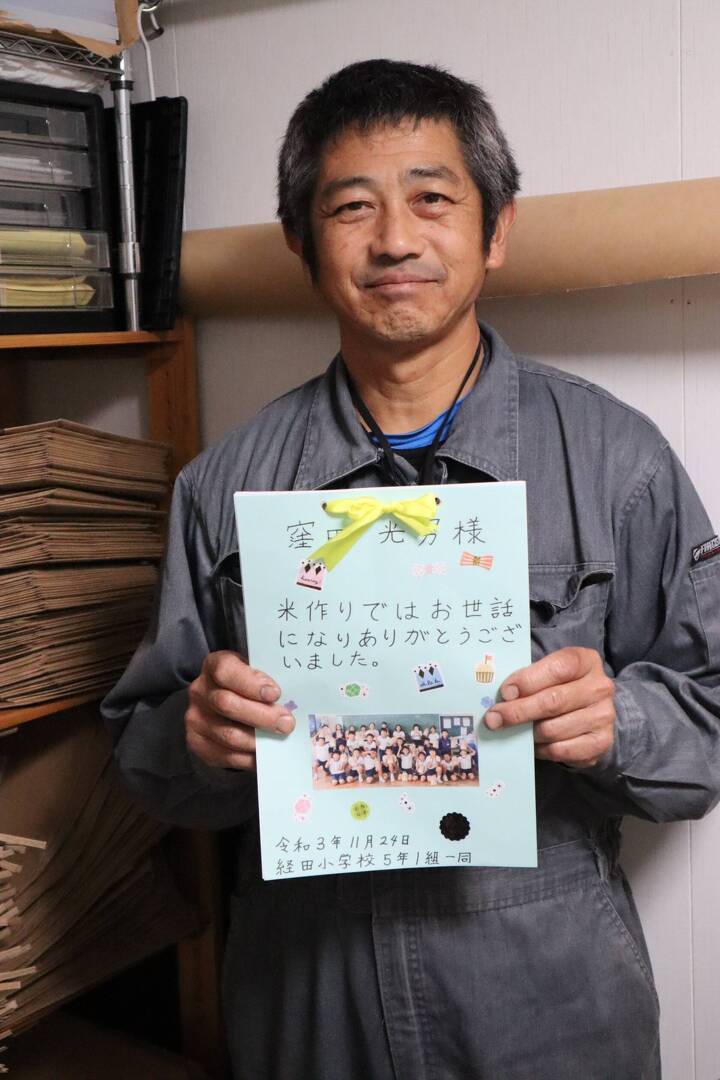 窪田光男様
米作りではお世話
になりありがとうござ
いました。
令和3年11月24日
経田小学校5年1組一同